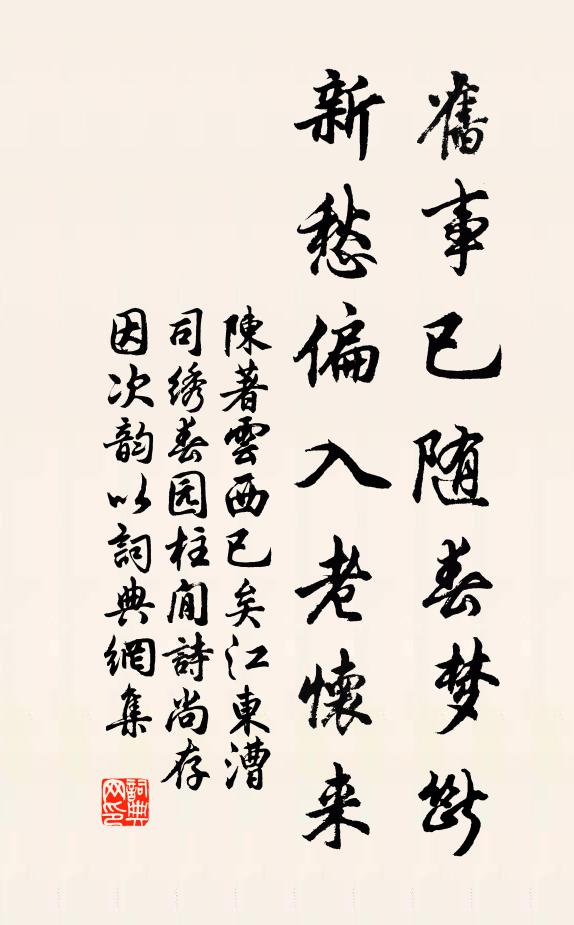 舊事已随春梦斷
新愁偏入老懷来
陳著雲西已矣江東漕
司绣春园柱间詩尚存
因次韵以詞典網集
詞典网印